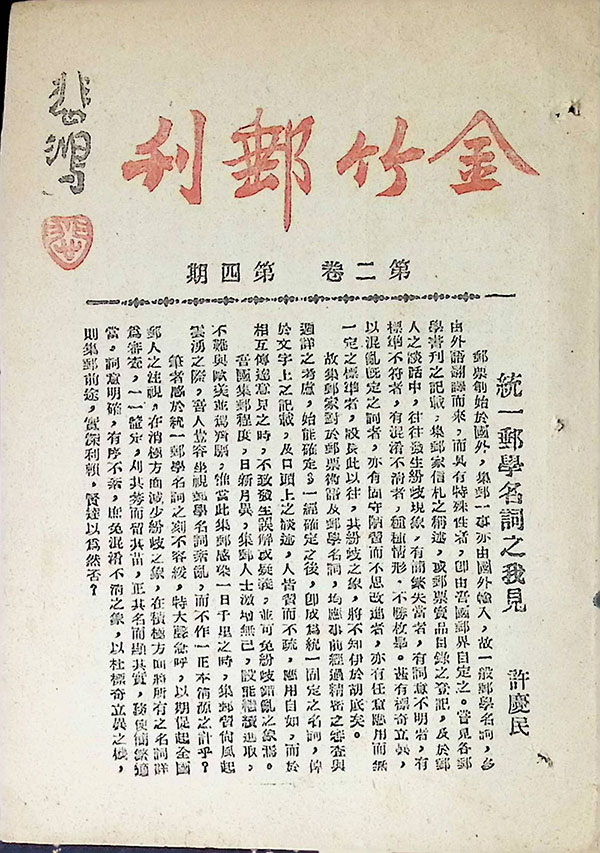 金竹郵利
悲鴻
第二卷 第四期
統一郵學名詞之我見
許慶民
郵票創始於國外，集郵一事亦由國外輸入，故一般郵學名詞，多
由外語翻譯而來，而具有特殊性者，卽由吾國郵界自定之。嘗見各郵
學書刊之記載，集郵家信札之稱述，或郵票賣品目錄之登記，及於郵
人之談話中，往往發生紛岐現象，有簡繁失當者，有詞意不明者，有
標準不符者，有混淆不清者，種種情形，不勝枚舉。甚有標奇立異，
以混亂旣定之詞者，亦有固守陋習而不思改進者，亦有任意應用而無
一定之標準者，設長此以往，其紛岐之象，將不知伊於胡底矣。
故集郵家對於郵票物語及郵學名詞，均應事前經過精密之審查與
週詳之考慮，始能確定；一經確定之後，卽成爲統一固定之名詞，俾
於文字上之記載，及口頭上之談述，人皆習而不疏，應用自如，而於
相互傳達意見之時，不致發生誤解或疑義，並可免紛岐錯亂之象焉。
吾國集郵程度，日新月異，集郵人士激增無已，設能繼續進取，
不難與歐美並駕齊驅，惟當此集郵感染一日千里之時，集郵習尙風起
雲湧之際，吾人豈容坐視郵學名詞紊亂，而不作一正本淸源之計乎？
筆者感於統一郵學名詞之刻不容緩，特大聲急呼，以期促起全國
郵人之注視，在消極方面減少紛岐之象，在積極方面將所有之名詞詳
爲審查，一一釐定，刈其莠而留其苗，正其名而顯其實，務使簡繁適
當，詞意明確，有序不紊，庶免混淆不淸之象，以杜標奇立異之機，
則集郵前途，實深利賴，賢達以爲然否？